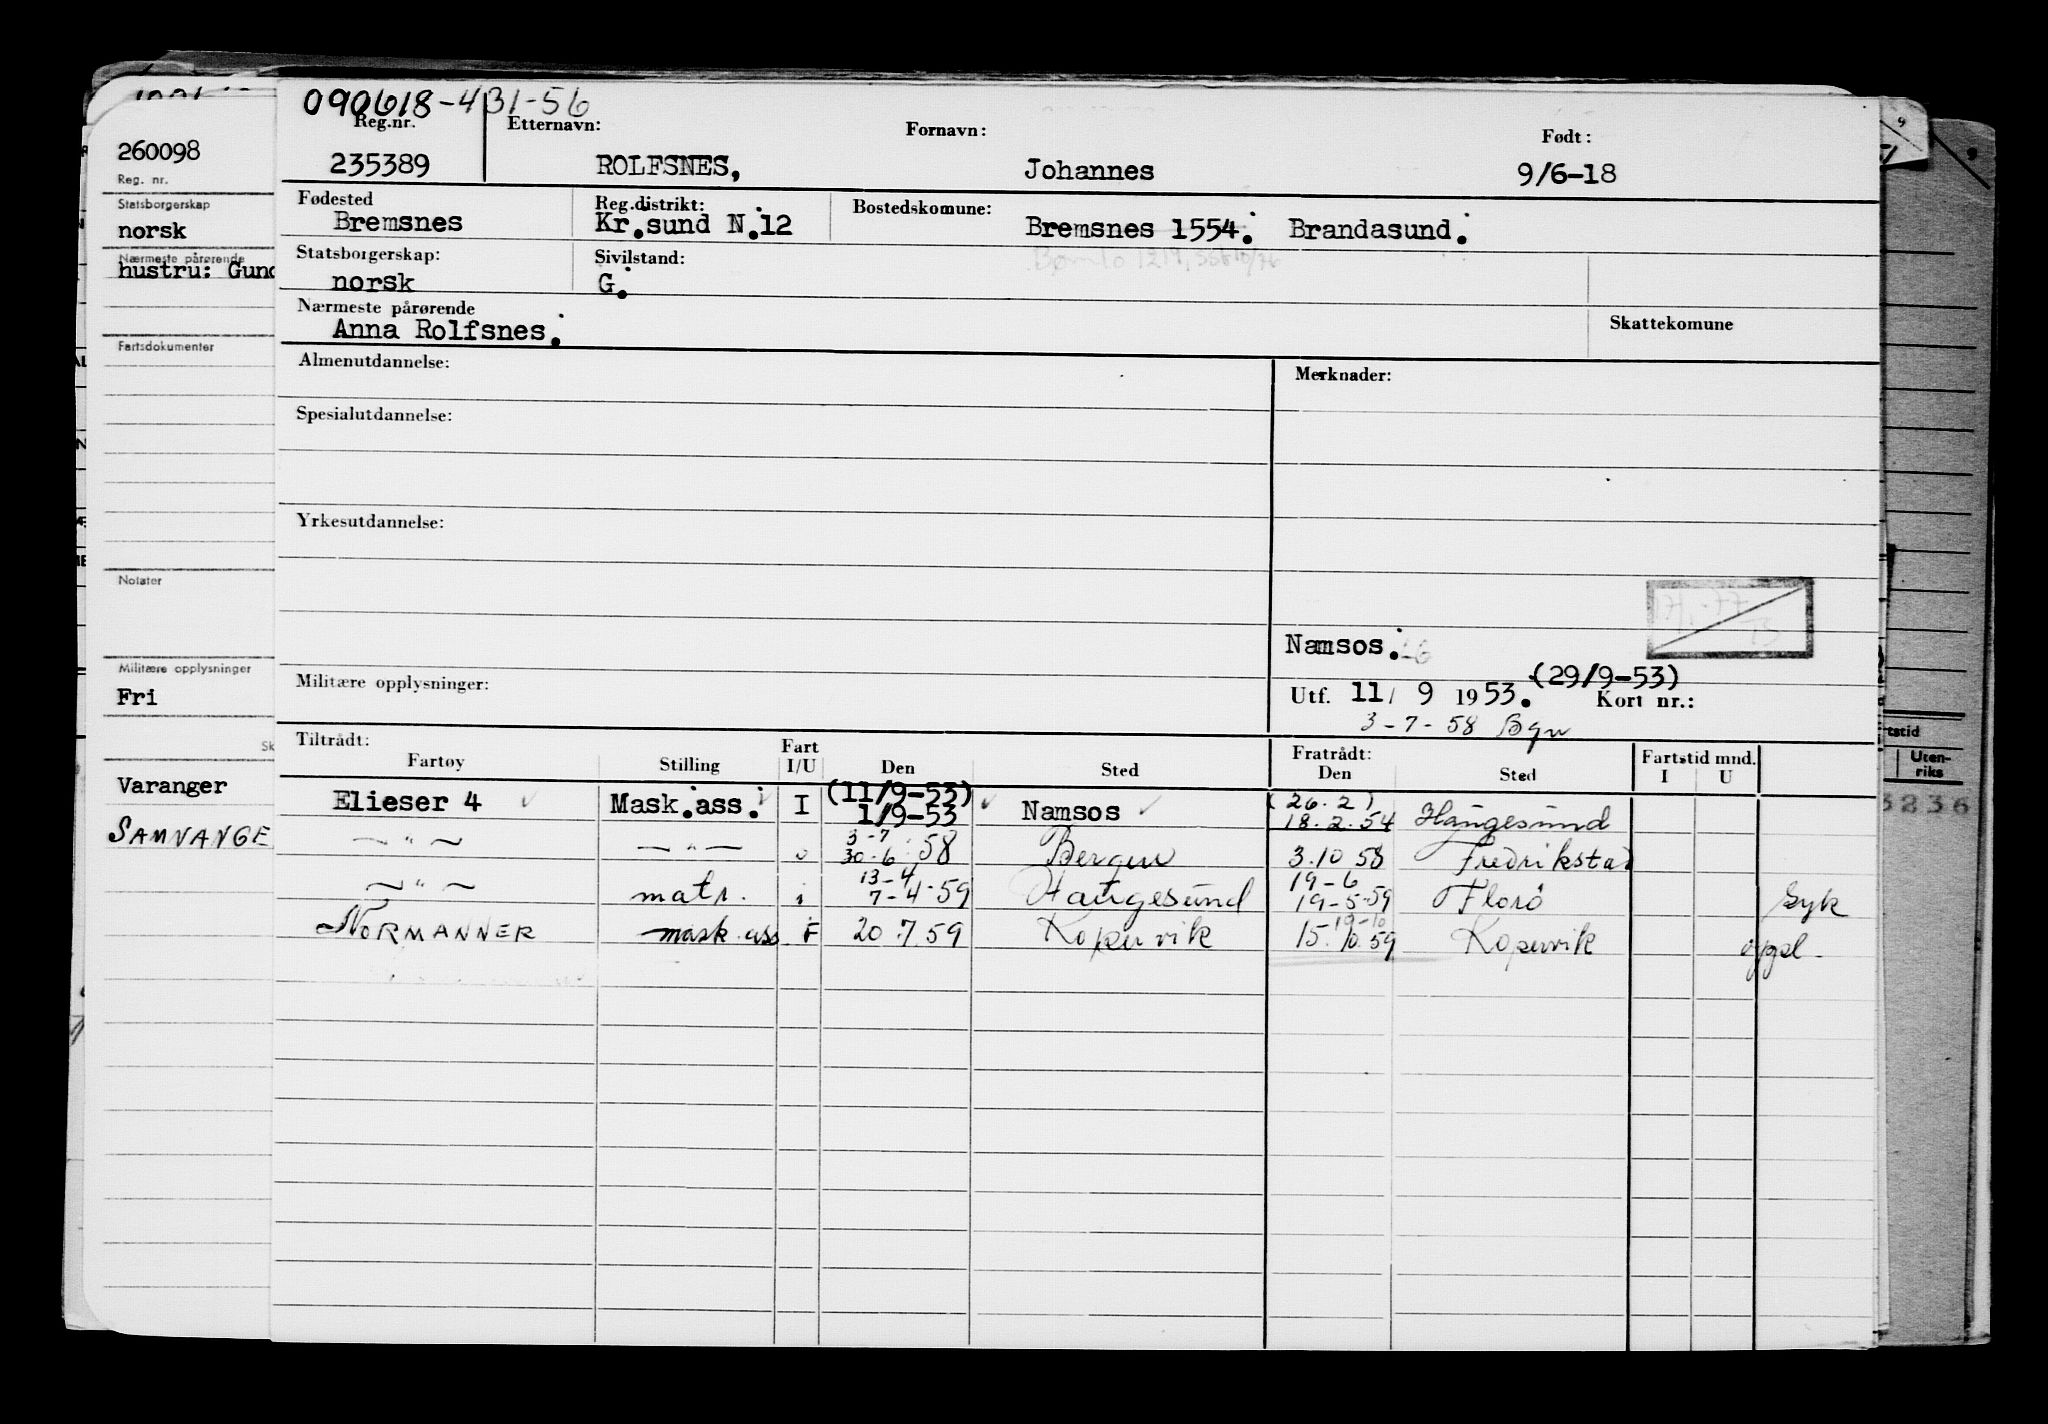 090618-431-56
Reg.nr. Etternavn: Fornavn: Født:
235389 ROLFSNES, Johannes 9/6-18
Fødested Reg.distrikt: Bostedskomune:
Bremsnes Kr.sund N.12 Bremsnes 1554. Brandasund.
Statsborgerskap: Sivilstand:
norsk G.
Nærmeste pårørende Skattekomune
Anna Rolfsnes.
Almenutdannelse: Merknader:
Spesialutdannelse:
Yrkesutdannelse:
Namsos.
Militære opplysninger: Utf. 11/ 9 1953. (29/9-53) Kort nr.:
3-7-58 Bgn
Tiltrådt: Fart Fratrådt: Fartstid mnd.
Fartøy Stilling I/U Den Sted Den Sted I U
Elieser 4 Mask.ass. I (11/9-53) 1/9-53 Namsos (26.2) 18.2.54 Haugesund
— " — — " — 3-7 30-6 58 Bergen 3.10 58 Fredrikstad
— " — matr. i 13-4 7-4-59 Haugesund 19-6 19-5-59 Florö Syk
NORMANNER mask.ass 20.7.59 Kopervik 19-10 15.10.59 Kopervik oppl.
260098
Reg. nr.
Statsborgerskap
norsk
Nærmeste pårørende
hustru: Gund
Fartsdokumenter
Notater
Militære opplysninger
Fri
Sk
Varanger
SAMNANGE
Uten-
riks
3236